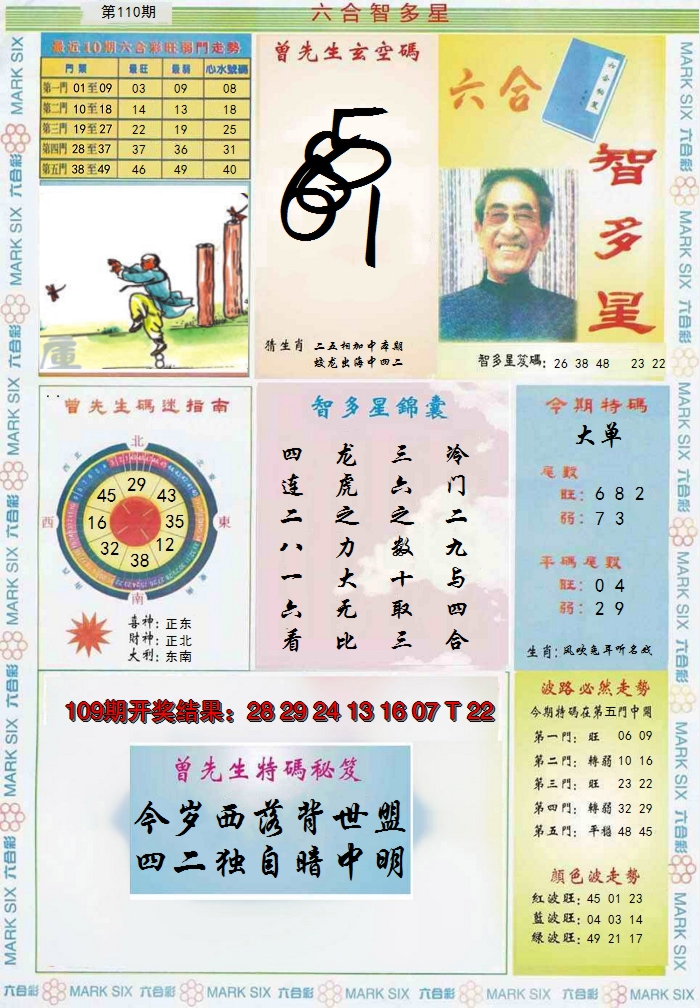 第110期
六合智多星
最近10期六合彩旺弱門走勢
門類 最旺 最弱 心水號碼
第一門 01至09 03 09 08
第二門 10至18 14 13 18
第三門 19至27 22 19 25
第四門 28至37 37 36 31
第五門 38至49 46 49 40
曾先生玄空碼
猜生肖 二五相加中本期
蛟龙出海中四二
六合
智多星
智多星笈碼：26 38 48 23 22
曾先生碼迷指南
北
西
東
南
29
43
35
12
38
32
16
45
喜神：正东
財神：正北
大利：东南
智多星錦囊
冷门二九与四合
三六之数十取三
龙虎之力大无比
四连二八一六看
今期特碼
大单
尾數
旺：6 8 2
弱：7 3
平碼尾數
旺：0 4
弱：2 9
生肖：风吹兔耳听名戏
109期开奖结果：28 29 24 13 16 07 T 22
曾先生特碼秘笈
今岁西落背世盟
四二独自暗中明
波路必然走勢
今期特碼在第五門中開
第一門：旺 06 09
第二門：轉弱 10 16
第三門：旺 23 22
第四門：轉弱 32 29
第五門：平穩 48 45
顏色波走勢
紅波旺：45 01 23
藍波旺：04 03 14
綠波旺：49 21 17
MARK SIX 六合彩